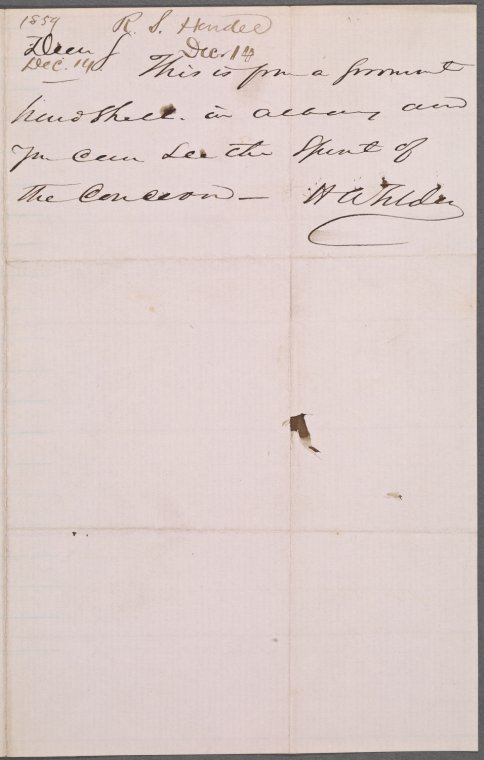 1859 R. S. Hendee
Dear S Dec 14
Dec. 14.
This is from a prominent
in albany and
you can see the Spirit of
the Concern —